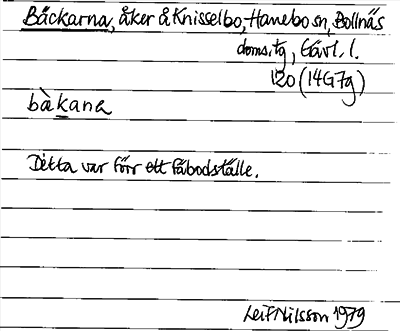 Bäckarna, åker å Knisselbo, Hanebo sn, Bollnäs
doms.tg, Gävl. l.
120 (14G7g)
bàkana
Detta var förr ett fäbodställe.
Leif Nilsson 1979